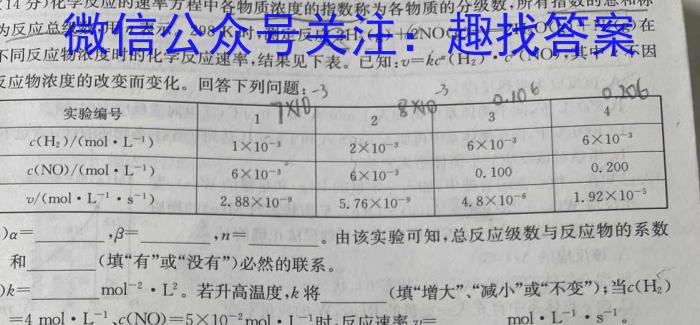 (14分)化学反应的速率方程中各物质浓度的指数称为各物质的分级数,所有指数的总和称
为反应总级数
微信公众号关注:趣找答案
在
不同反应物浓度时的化学反应速率,结果见下表。已知:v=kc
反应物浓度的改变而变化。回答下列问题:
7×10⁻³ 8×10⁻³ 0.106 0.206
实验编号 1 2 3 4
c(H₂)/(mol·L⁻¹) 1×10⁻³ 2×10⁻³ 6×10⁻³ 6×10⁻³
c(NO)/(mol·L⁻¹) 6×10⁻³ 6×10⁻³ 0.100 0.200
v/(mol·L⁻¹·s⁻¹) 2.88×10⁻⁹ 5.76×10⁻⁹ 4.8×10⁻⁶ 1.92×10⁻⁵
)α= ,β= ,n= 。由该实验可知,总反应级数与反应物的系数
和 (填“有”或“没有”)必然的联系。
)k= mol⁻²·L²。若升高温度,k将 (填“增大”、“减小”或“不变”);当c(H₂)
=4 mol·L⁻¹、c(NO)=5×10⁻² mol·L⁻¹时,反应速率v= mol·L⁻¹·s⁻¹。